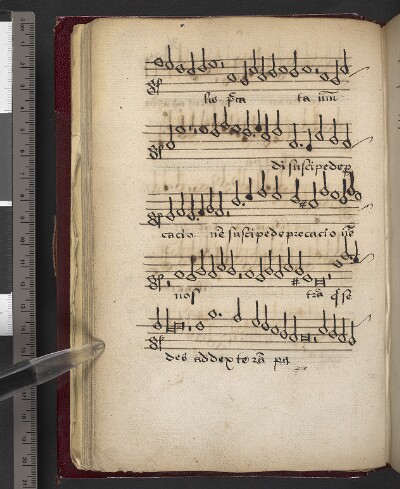 lis p̄ta ta mū
di suscipe dep̄
cacio nē suscipe deprecacio nē
nos̄ trā q̄ se
des ad dexte rā pa